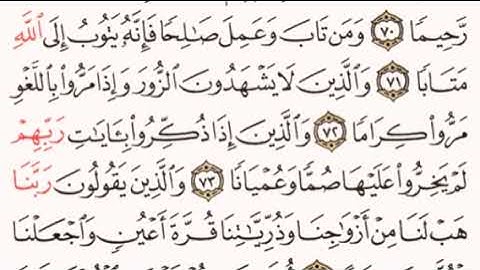 رَّحِيمٗا ٧٠ وَمَن تَابَ وَعَمِلَ صَٰلِحٗا فَإِنَّهُۥ يَتُوبُ إِلَى ٱللَّهِ
مَتَابٗا ٧١ وَٱلَّذِينَ لَا يَشۡهَدُونَ ٱلزُّورَ وَإِذَا مَرُّواْ بِٱللَّغۡوِ
مَرُّواْ كِرَامٗا ٧٢ وَٱلَّذِينَ إِذَا ذُكِّرُواْ بِـَٔايَٰتِ رَبِّهِمۡ
لَمۡ يَخِرُّواْ عَلَيۡهَا صُمّٗا وَعُمۡيَانٗا ٧٣ وَٱلَّذِينَ يَقُولُونَ رَبَّنَا
هَبۡ لَنَا مِنۡ أَزۡوَٰجِنَا وَذُرِّيَّٰتِنَا قُرَّةَ أَعۡيُنٖ وَٱجۡعَلۡنَا